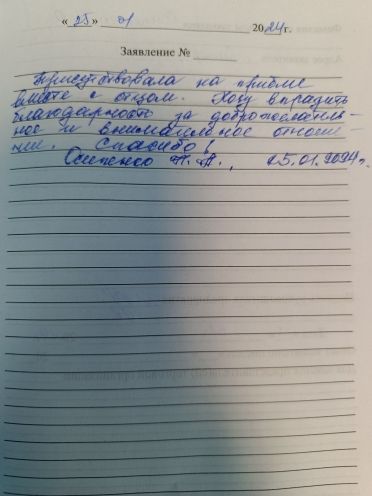 « 25 » 01 2024 г.
Заявление №
Присутствовала на приёме
вместе с отцом. Хочу выразить
благодарность за доброжелатель-
ное и внимательное отноше-
ние. Спасибо!
Осипенко Т. А., 25.01.2024 г.